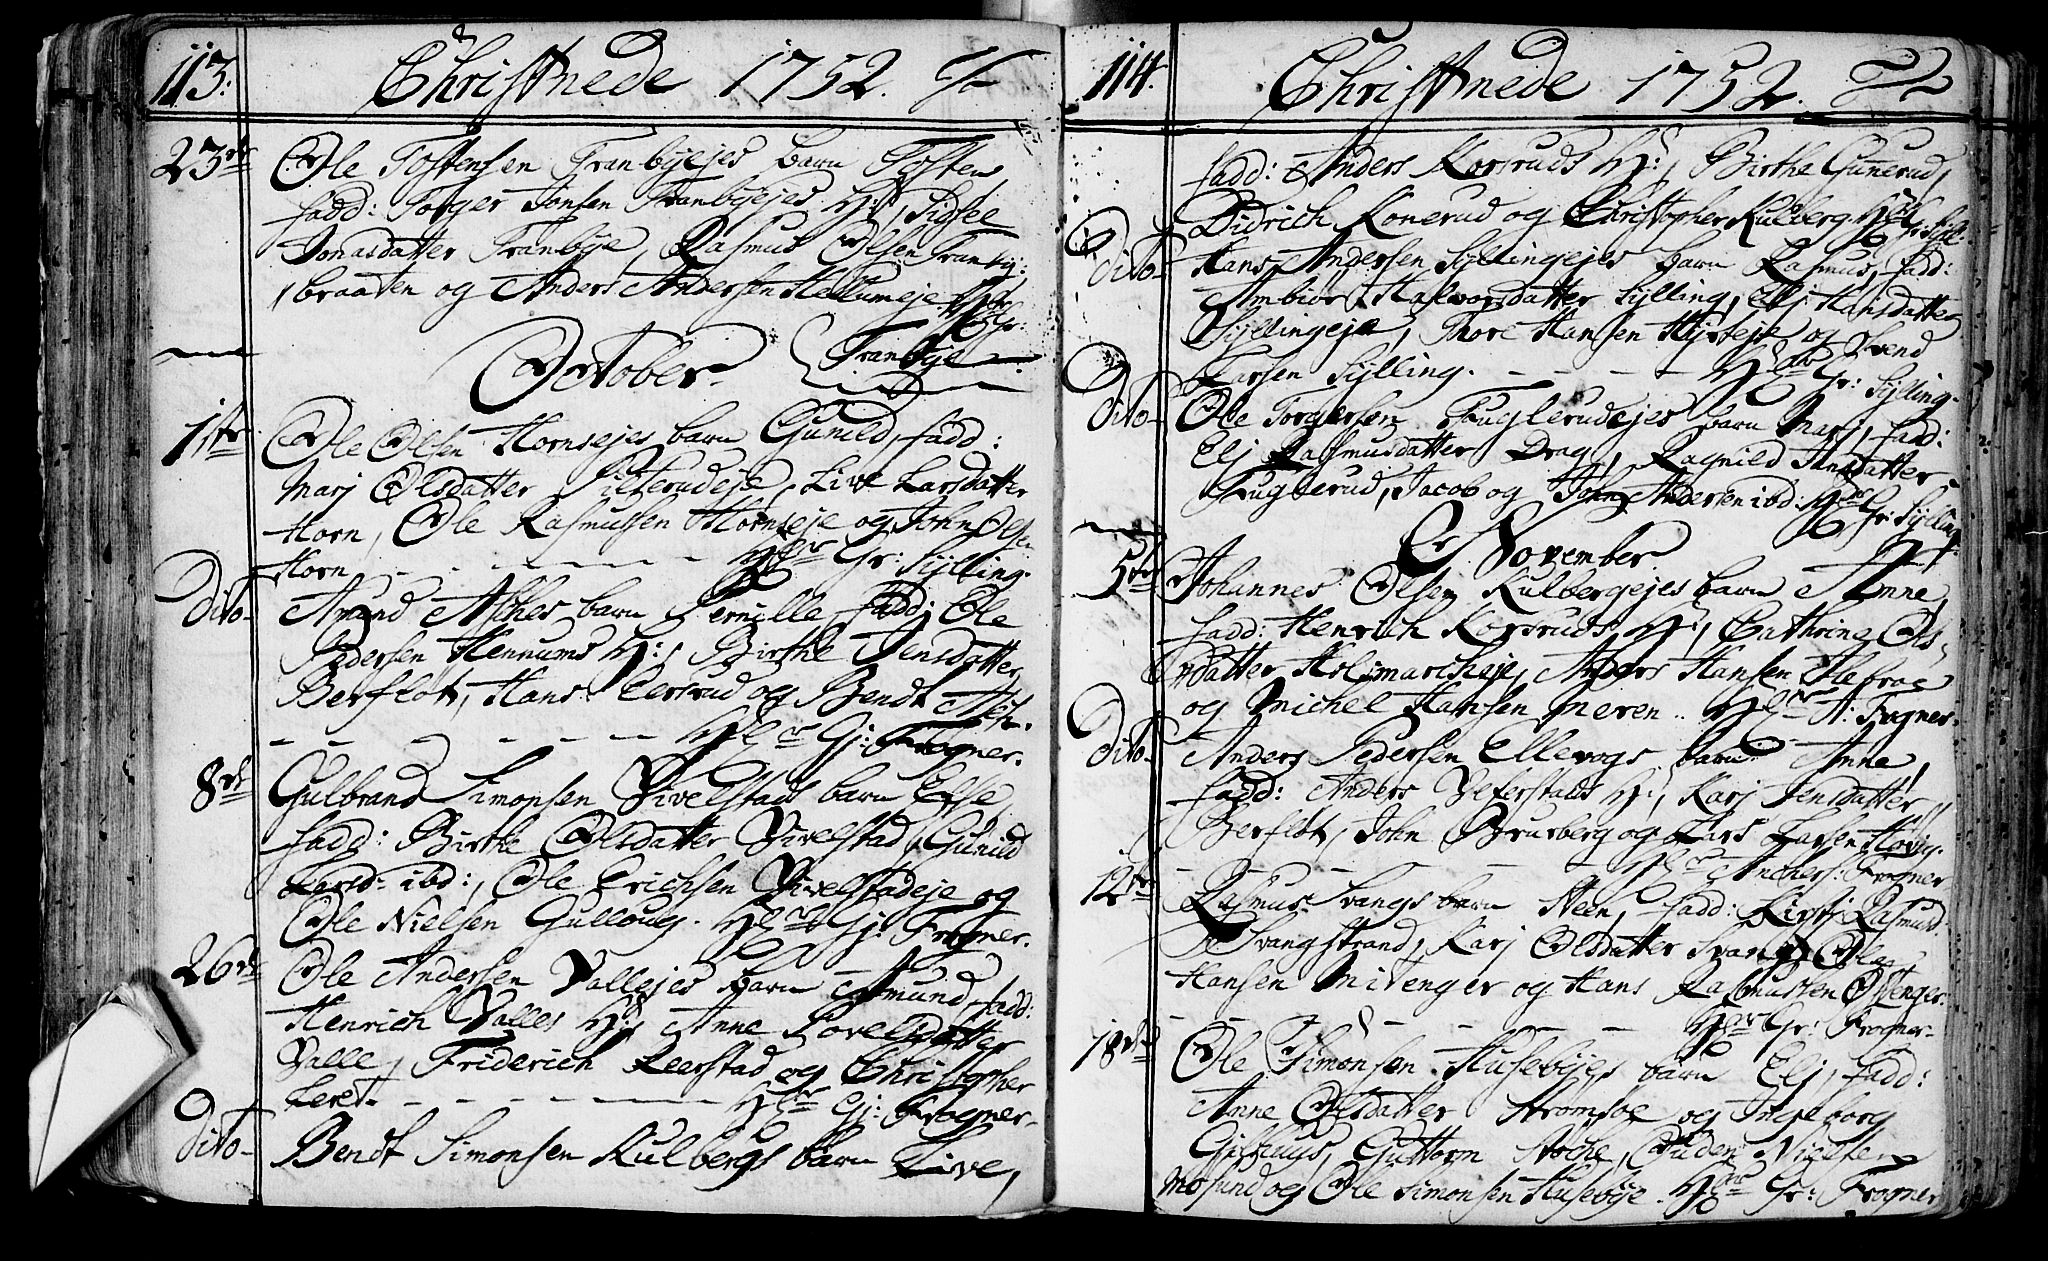 113. Christnede 1752.
23de Ole Tostensen Tranbyejes barn Tosten
fadd: Torger Jonsen Tranbyejes H:, Sidsel
Jonasdatter Tranbye, Rasmus Olsen Tranby:
braaten og Anders Andersen Hellumeje
Tranbye
October
1ste Ole Olsen Hornsejes barn Gunild, fadd:
Marj Olsdatter Silterudeje, Live Larsdatter
Horn, Ole Rasmussen Hornseje og John Olsen
Horn Gr: Sylling.
Dito Amund Aschers barn Pernille, fadd: Ole
Pedersen Hennums H:, Birthe Jensdatter
Berflot, Hans Eersrud og Bendt
Gj: Frogner.
8de Gulbrand Simonsen Vivelstads barn Else
fadd: Birthe Olsdatter Vivelstad, Gunild
Larsd: ibd:, Ole Erichsen Vivelstadeje og
Ole Nielsen Gulloug. Gj: Frogner.
26de Ole Andersen Vallejes barn Asmund, fadd:
Henrich Valles H:, Anne Povelsdatter
Valle, Friderich Leerstad og Christopher
Leret Gj: Frogner
Dito Bendt Simonsen Kulbergs barn Live,
114. Christnede 1752.
fadd: Anders Korsruds H:, Birthe Gunerud,
Didrich Konerud og Christopher Kulberg.
Dito Hans Andersen Syllingejes barn Rasmus, fadd:
Ambior Halvorsdatter Sylling, Elj Hansdatter
Syllingeje, Thore Hansen Hyrseje og Svend
Larsen Sylling. Gr: Sylling.
Dito Ole Torgersen Fuglerudejes barn Marj, fadd:
Elj Rasmusdatter Drag, Ragnild Jensdatter
Fuglerud, Jacob og John Andersen ibd: Gr: Sylling
November
5te Johannes Olsen Kulbergejes barn Anne,
fadd: Henrich Korsruds H:, Cathrine Ols
datter Holsmarcheje, Anders Hansen
og Michel Hansen Meren. A: Frogner.
Dito Anders Pedersen Ellevogs barn Anne,
fadd: Anders Veferstads H:, Karj Jensdatter
Berflot, John Brursberg og Lars Larsen Hovig.
Frogner
12te Rasmus Svangs barn Steen, fadd: Rasmusd:
Svangstrand, Karj Olsdatter Svang, Ole
Hansen Mitenger og Hans Rasmussen Østenger.
Gr: Frogner
18de Ole Simonsen Husebyes barn Elj, fadd:
Anne Olsdatter Strømsøe og Ingeborg
Gilhuus, Guttorm Stoche, Auden Nielsen
Mosund og Ole Simonsen Husebye. Gr: Frogner